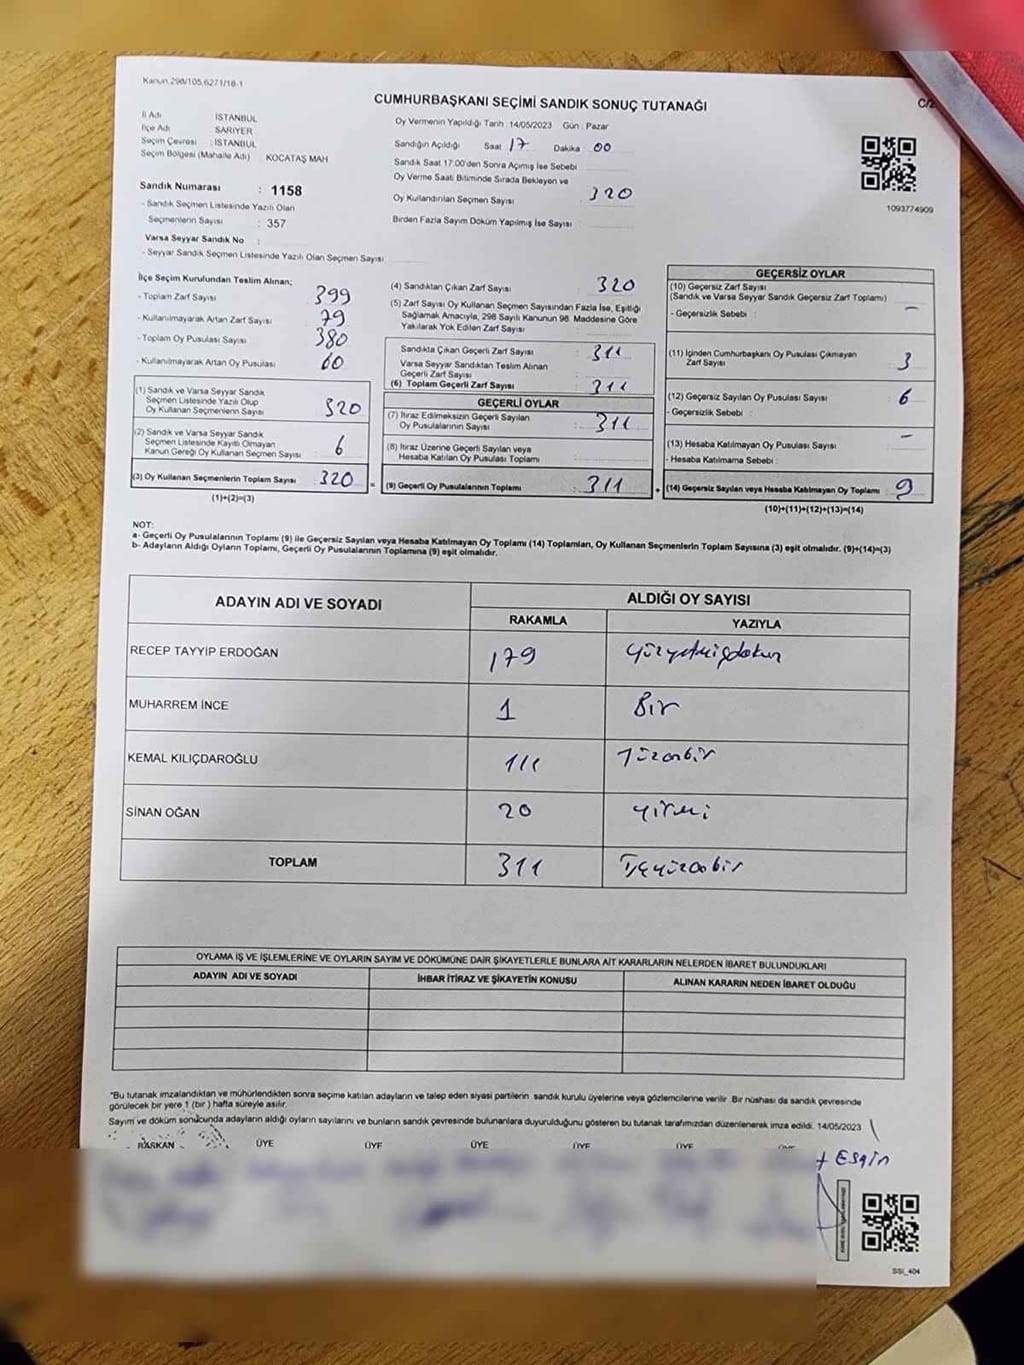 Kanun:298/105,6271/18-1
CUMHURBAŞKANI SEÇİMİ SANDIK SONUÇ TUTANAĞI
C/2
İl Adı : İSTANBUL
İlçe Adı : SARIYER
Seçim Çevresi : İSTANBUL
Seçim Bölgesi (Mahalle Adı) : KOCATAŞ MAH
Sandık Numarası : 1158
- Sandık Seçmen Listesinde Yazılı Olan
Seçmenlerin Sayısı : 357
Varsa Seyyar Sandık No :
- Seyyar Sandık Seçmen Listesinde Yazılı Olan Seçmen Sayısı
Oy Vermenin Yapıldığı Tarih : 14/05/2023 Gün : Pazar
Sandığın Açıldığı Saat 17 Dakika : 00
Sandık Saat 17:00'den Sonra Açımış İse Sebebi
Oy Verme Saati Bitiminde Sırada Bekleyen ve
Oy Kullandırılan Seçmen Sayısı : 320
Birden Fazla Sayım Döküm Yapılmış İse Sayısı
1093774909
İlçe Seçim Kurulundan Teslim Alınan;
- Toplam Zarf Sayısı 399
- Kullanılmayarak Artan Zarf Sayısı 79
- Toplam Oy Pusulası Sayısı 380
- Kullanılmayarak Artan Oy Pusulası 60
(1) Sandık ve Varsa Seyyar Sandık
Seçmen Listesinde Yazılı Olup
Oy Kullanan Seçmenlerin Sayısı 320
(2) Sandık ve Varsa Seyyar Sandık
Seçmen Listesinde Kayıtlı Olmayan
Kanun Gereği Oy Kullanan Seçmen Sayısı 6
(3) Oy Kullanan Seçmenlerin Toplam Sayısı 320
(1)+(2)=(3)
(4) Sandıktan Çıkan Zarf Sayısı 320
(5) Zarf Sayısı Oy Kullanan Seçmen Sayısından Fazla İse, Eşitliği
Sağlamak Amacıyla, 298 Sayılı Kanunun 98. Maddesine Göre
Yakılarak Yok Edilen Zarf Sayısı
Sandıkta Çıkan Geçerli Zarf Sayısı : 311
Varsa Seyyar Sandıktan Teslim Alınan
Geçerli Zarf Sayısı
(6) Toplam Geçerli Zarf Sayısı : 311
GEÇERLİ OYLAR
(7) İtiraz Edilmeksizin Geçerli Sayılan
Oy Pusulalarının Sayısı : 311
(8) İtiraz Üzerine Geçerli Sayılan veya
Hesaba Katılan Oy Pusulası Toplamı
= (9) Geçerli Oy Pusulalarının Toplamı : 311
GEÇERSİZ OYLAR
(10) Geçersiz Zarf Sayısı
(Sandık ve Varsa Seyyar Sandık Geçersiz Zarf Toplamı) : -
- Geçersizlik Sebebi :
(11) İçinden Cumhurbaşkanı Oy Pusulası Çıkmayan
Zarf Sayısı 3
(12) Geçersiz Sayılan Oy Pusulası Sayısı : 6
- Geçersizlik Sebebi :
(13) Hesaba Katılmayan Oy Pusulası Sayısı : -
- Hesaba Katılmama Sebebi :
+ (14) Geçersiz Sayılan veya Hesaba Katılmayan Oy Toplamı : 9
(10)+(11)+(12)+(13)=(14)
NOT:
a- Geçerli Oy Pusulalarının Toplamı (9) ile Geçersiz Sayılan veya Hesaba Katılmayan Oy Toplamı (14) Toplamları, Oy Kullanan Seçmenlerin Toplam Sayısına (3) eşit olmalıdır. (9)+(14)=(3)
b- Adayların Aldığı Oyların Toplamı, Geçerli Oy Pusulalarının Toplamına (9) eşit olmalıdır.
ADAYIN ADI VE SOYADI
ALDIĞI OY SAYISI
RAKAMLA YAZIYLA
RECEP TAYYİP ERDOĞAN 179 yüzyetmişdokuz
MUHARREM İNCE 1 Bir
KEMAL KILIÇDAROĞLU 111 Yüzonbir
SİNAN OĞAN 20 yirmi
TOPLAM 311 Üçyüzonbir
OYLAMA İŞ VE İŞLEMLERİNE VE OYLARIN SAYIM VE DÖKÜMÜNE DAİR ŞİKAYETLERLE BUNLARA AİT KARARLARIN NELERDEN İBARET BULUNDUKLARI
ADAYIN ADI VE SOYADI İHBAR İTİRAZ VE ŞİKAYETİN KONUSU ALINAN KARARIN NEDEN İBARET OLDUĞU
*Bu tutanak imzalandıktan ve mühürlendikten sonra seçime katılan adayların ve talep eden siyasi partilerin sandık kurulu üyelerine veya gözlemcilerine verilir. Bir nüshası da sandık çevresinde
görülecek bir yere 1 (bir ) hafta süreyle asılır.
Sayım ve döküm sonucunda adayların aldığı oyların sayılarını ve bunların sandık çevresinde bulunanlara duyurulduğunu gösteren bu tutanak tarafımızdan düzenlenerek imza edildi. 14/05/2023
BAŞKAN ÜYE ÜYE ÜYE ÜYE ÜYE
Esgin
SSI_404